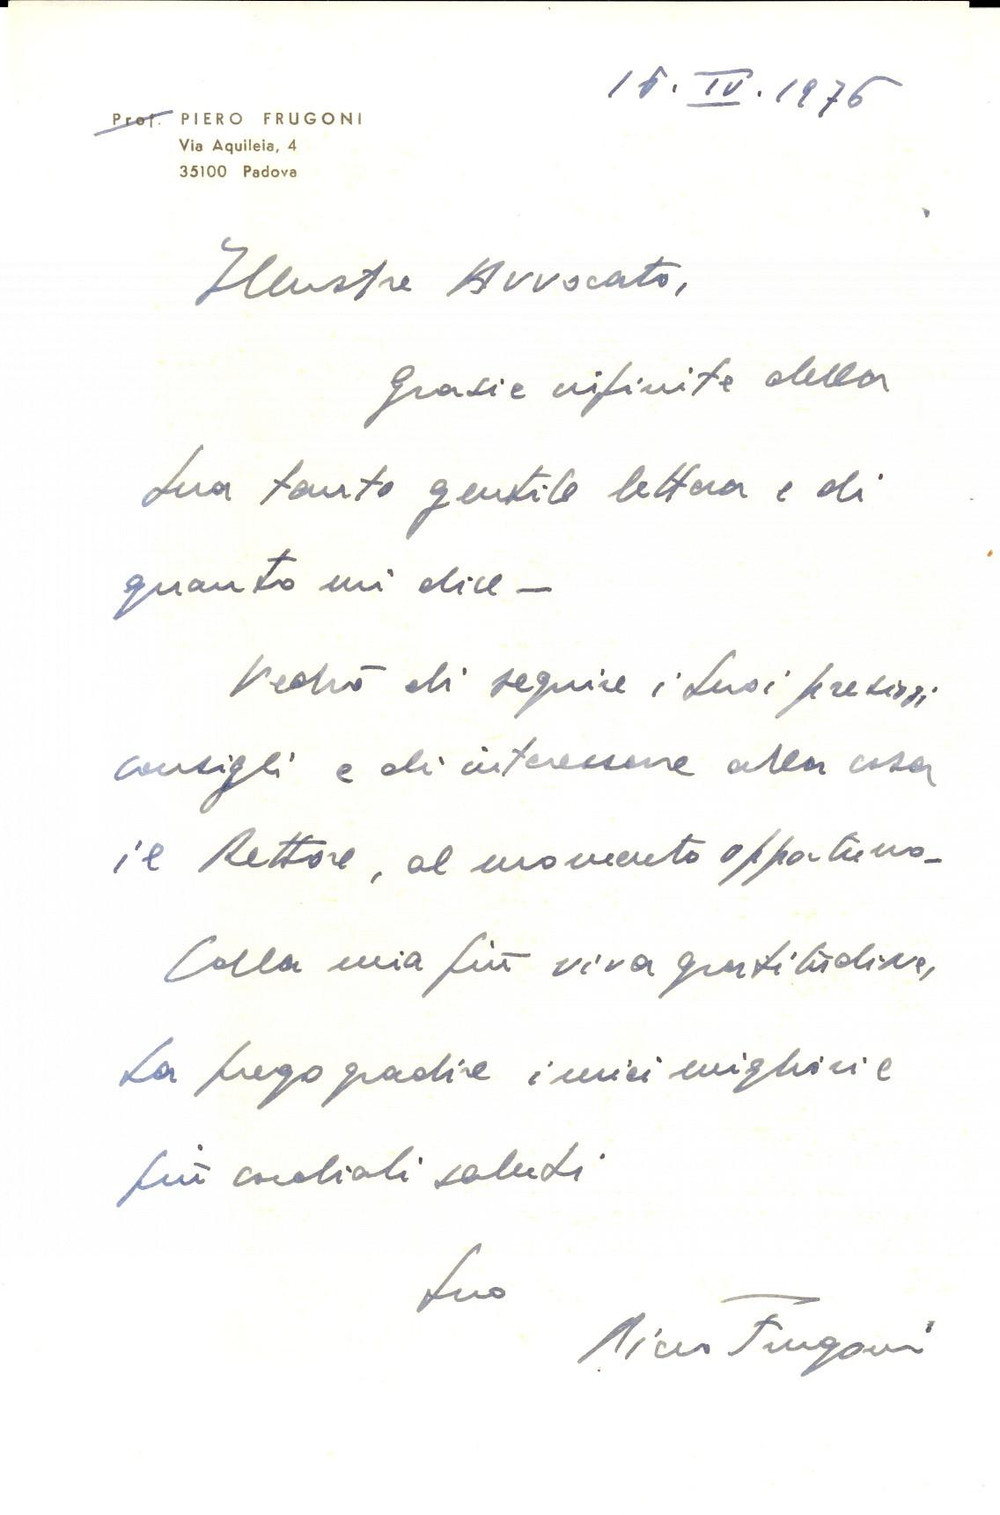 15. IV. 1976
Prof. PIERO FRUGONI
Via Aquileia, 4
35100 Padova
Illustre Avvocato,
Grazie infinite della
Sua tanto gentile lettera e di
quanto mi dice –
Vedrò di seguire i Suoi preziosi
consigli e di interessare alla cosa
il Rettore, al momento opportuno –
Colla mia più viva gratitudine,
La prego gradire i miei migliori e
più cordiali saluti
Suo
Piero Frugoni